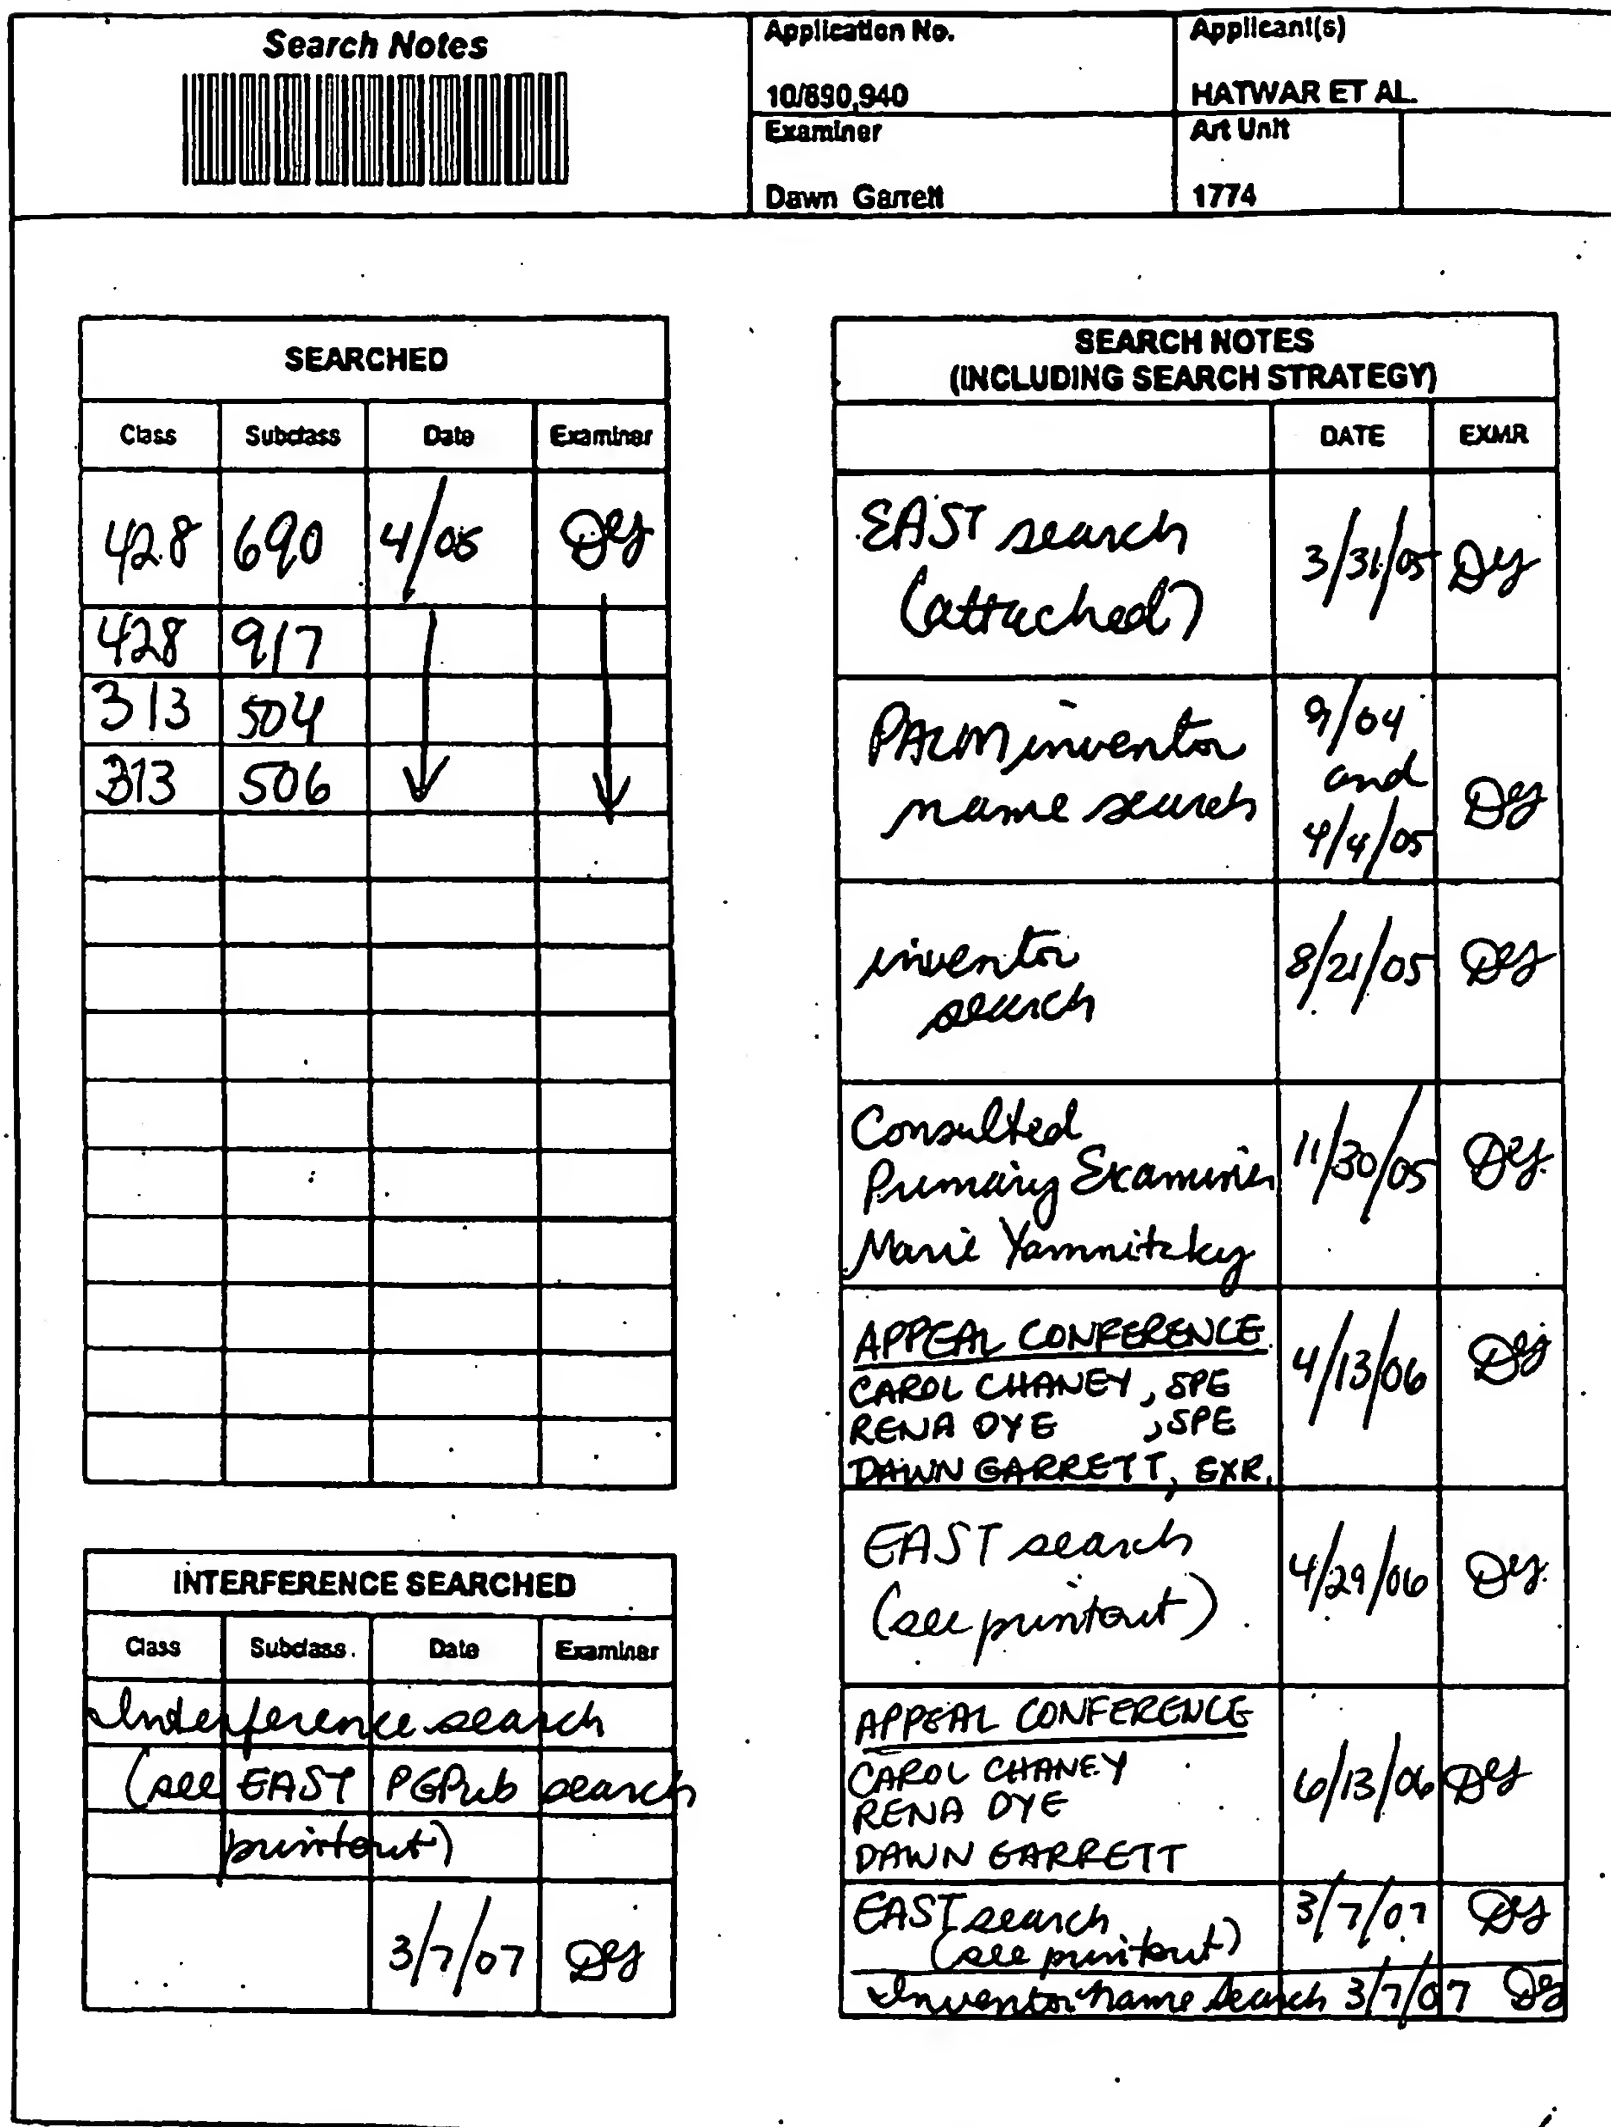 Search Notes
Application No.
Applicant(s)
10/690,940
HATWAR ET AL.
Examiner
Art Unit
Dawn Garrett
1774
SEARCHED
Class Subclass Date Examiner
428 690 4/05 DG
428 917
313 504
313 506
INTERFERENCE SEARCHED
Class Subclass Date Examiner
Interference search
(see EAST PGPub search
printout)
3/7/07 DG
SEARCH NOTES
(INCLUDING SEARCH STRATEGY)
DATE EXMR
EAST search
(attached)
3/31/05 DG
PALM inventor
name search
9/04
and
4/4/05
DG
inventor
search
8/21/05 DG
Consulted
Primary Examiner
Marie Yamnitzky
11/30/05 DG
APPEAL CONFERENCE
CAROL CHANEY, SPE
RENA DYE , SPE
DAWN GARRETT, EXR.
4/13/06 DG
EAST search
(see printout)
4/29/06 DG
APPEAL CONFERENCE
CAROL CHANEY
RENA DYE
DAWN GARRETT
6/13/06 DG
EAST search
(see printout)
3/7/07 DG
Inventor name search 3/7/07 DG